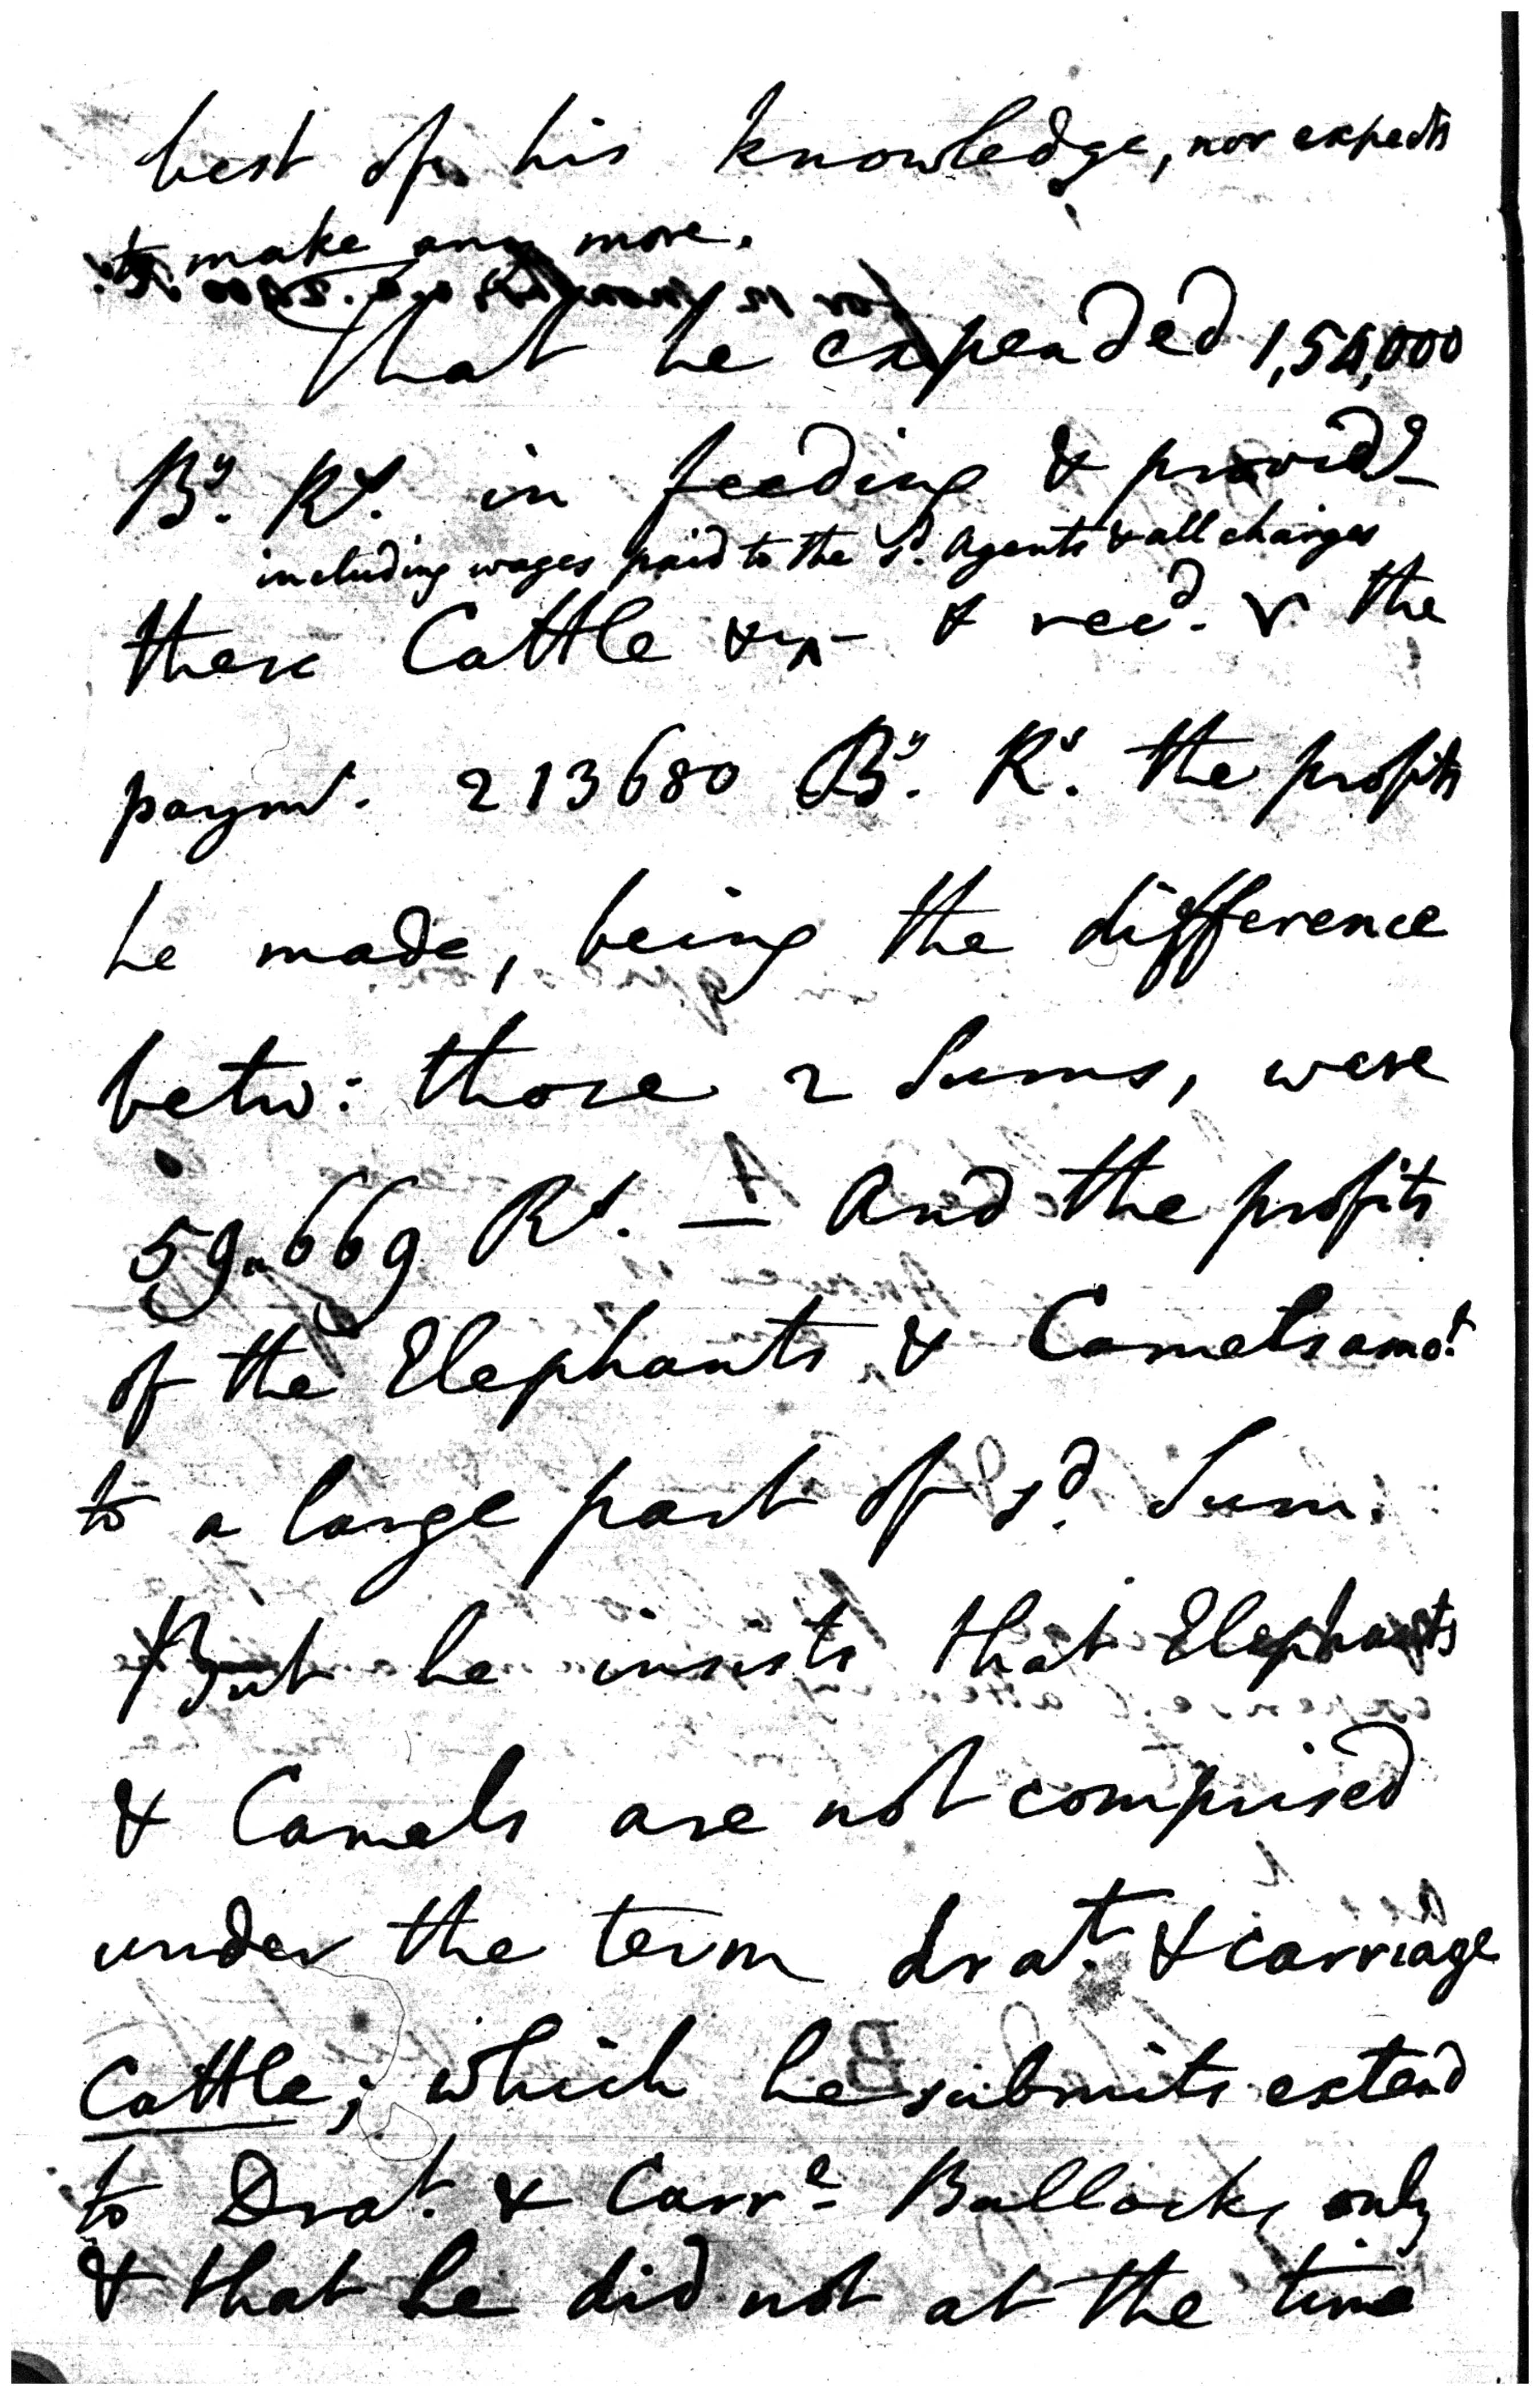 best of his knowledge, nor expects
to make any more.
That he expended 1,54,000
By. Rs. in feeding & providg
including wages paid to the sd. Agents & all charges
these Cattle &c ^ & recd. the
paymt. 213680 By. Rs. the profits
he made, being the difference
betw: those 2 Sums, were
59.669 Rs. — And the profits
of the Elephants & Camels amot.
to a large part of sd. Sum.
But he insists that Elephants
& Camels are not comprised
under the term drat. & carriage
Cattle; which he submits extend
to Drat. & Carre. Bullocks only
& that he did not at the time